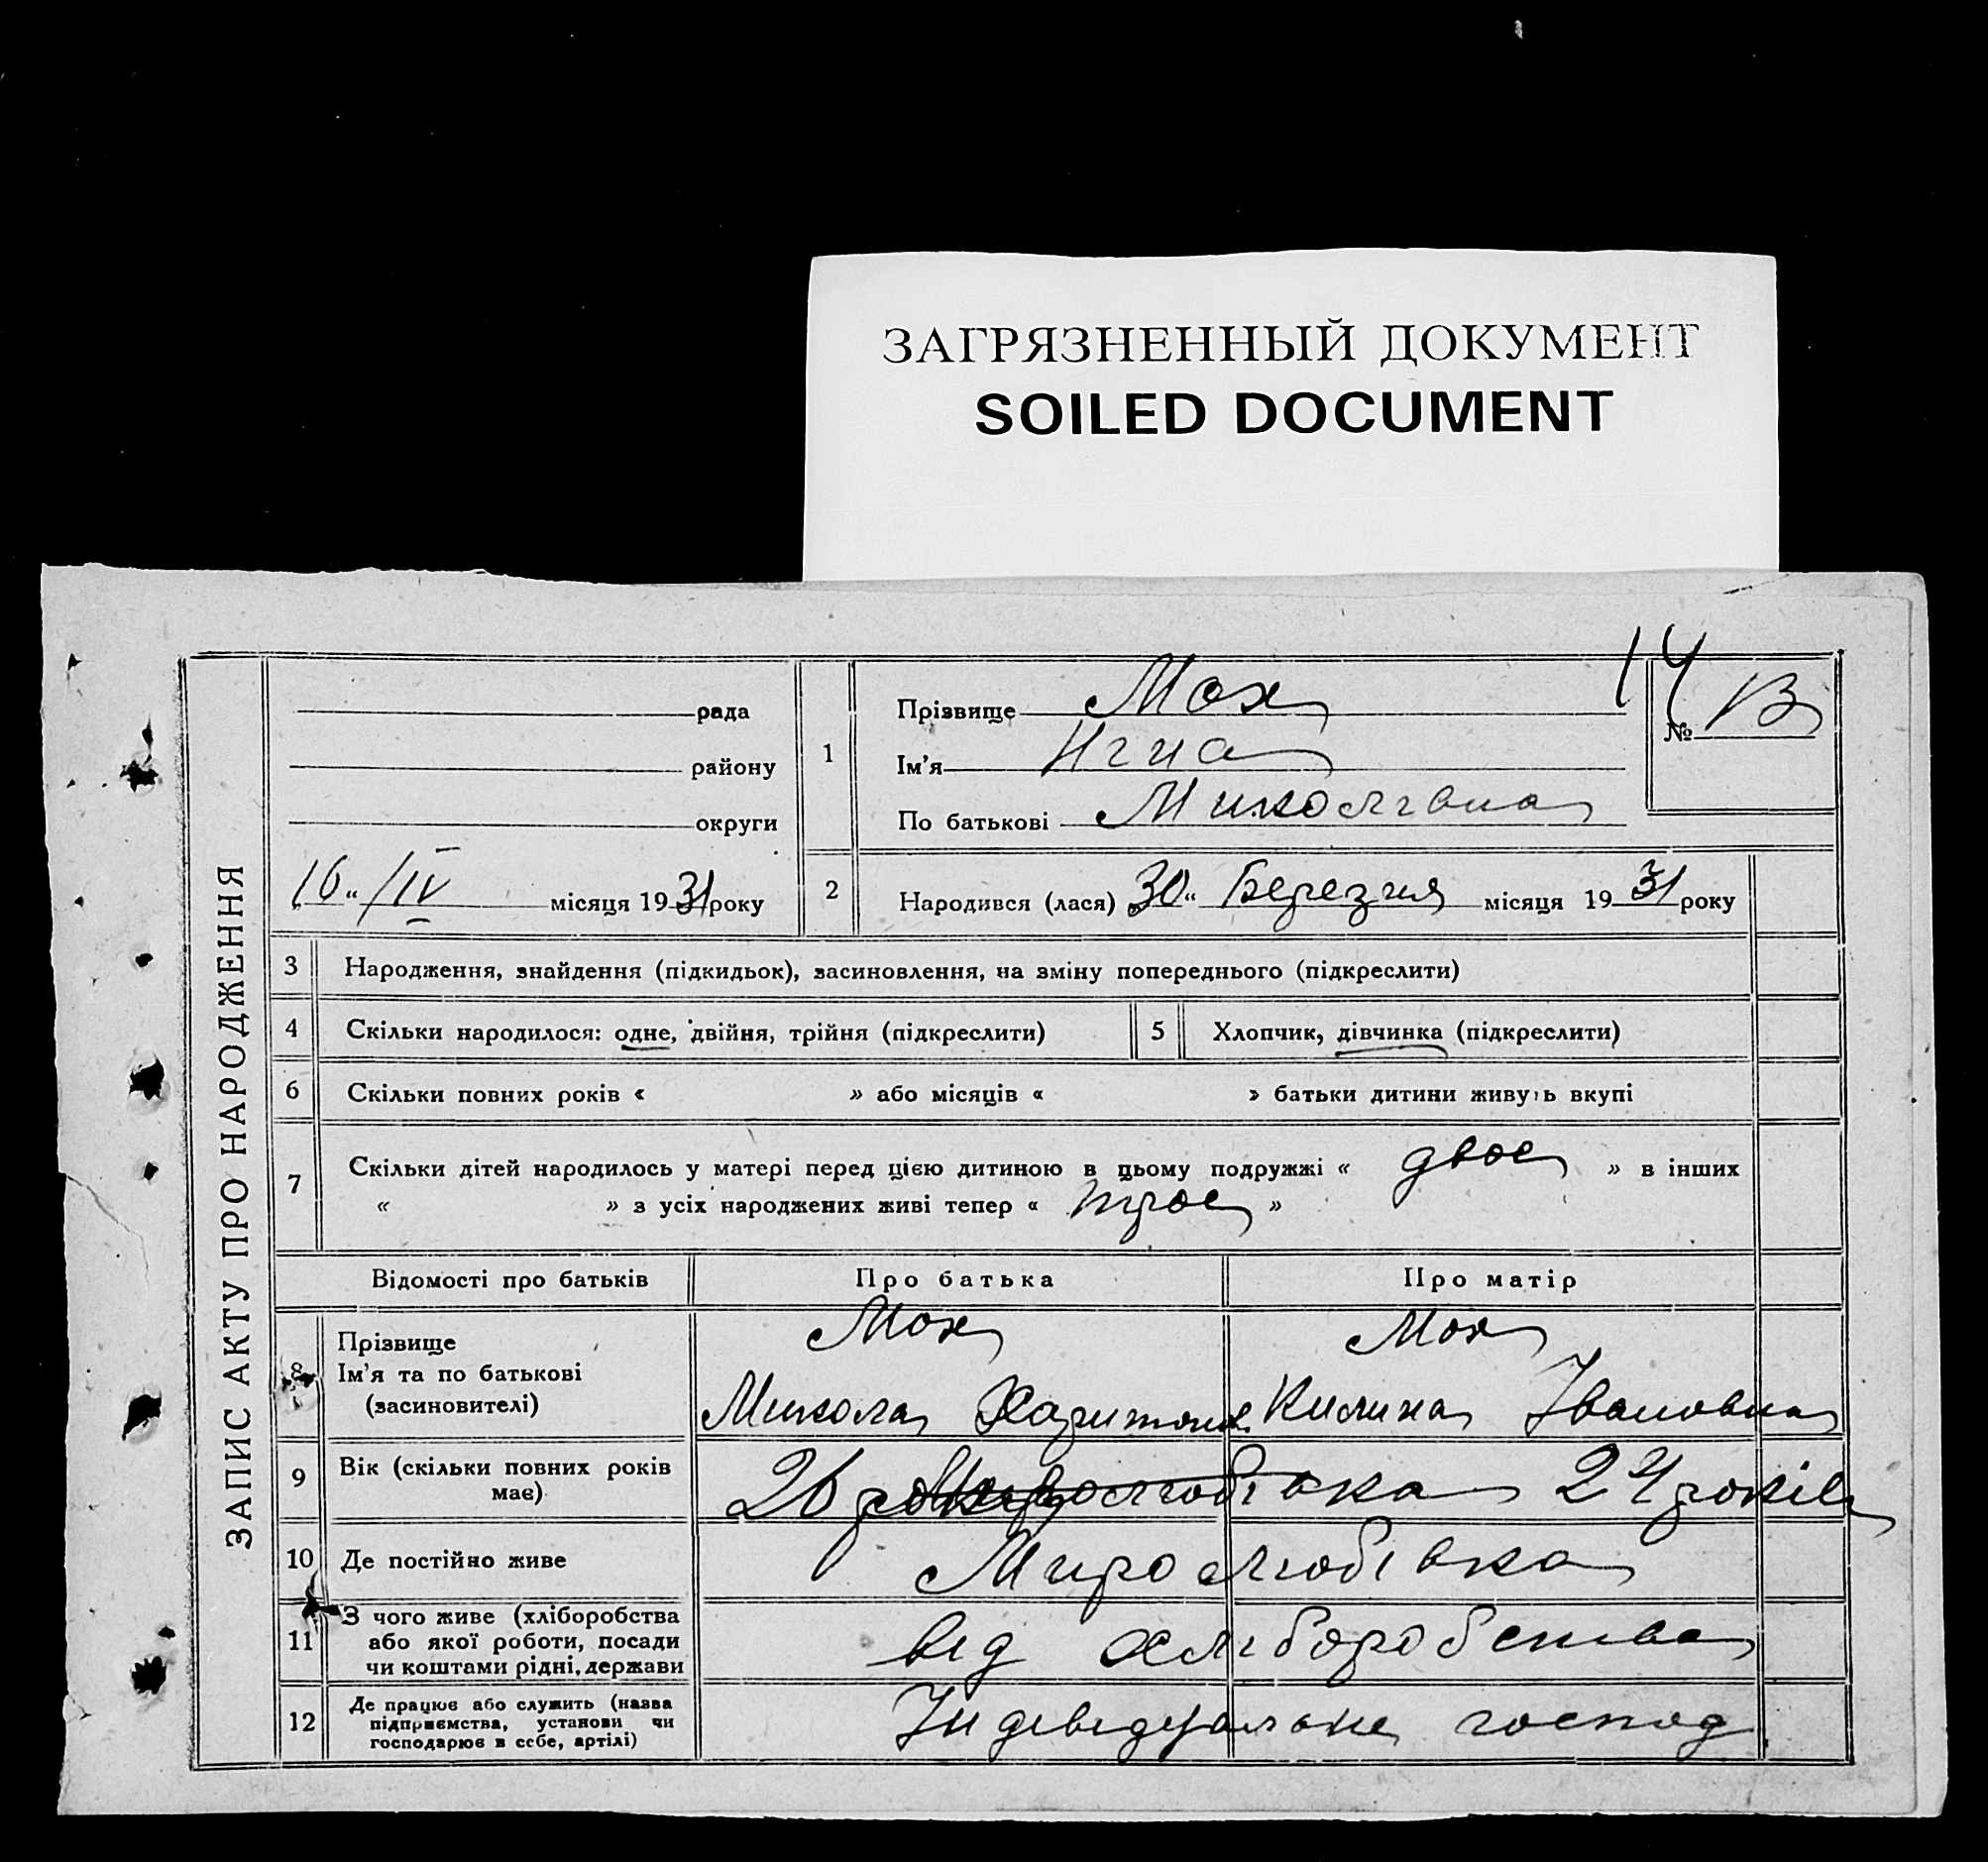 ЗАГРЯЗНЕННЫЙ ДОКУМЕНТ
SOILED DOCUMENT
ЗАПИС АКТУ ПРО НАРОДЖЕННЯ
рада
району
округи
16 " /IV місяця 1931 року
14
№ 13
1 Прізвище Мох
Ім'я
По батькові Миколівна
2 Народився (лася) 30 " Березня місяця 1931 року
3 Народження, знайдення (підкидьок), засиновлення, на зміну попереднього (підкреслити)
4 Скільки народилося: одне, двійня, трійня (підкреслити)
5 Хлопчик, дівчинка (підкреслити)
6 Скільки повних років « » або місяців « » батьки дитини живуть вкупі
7 Скільки дітей народилось у матері перед цією дитиною в цьому подружжі « двое » в інших
« » з усіх народжених живі тепер « трое »
Відомості про батьків Про батька Про матір
8 Прізвище Мох Мох
Ім'я та по батькові
(засиновителі) Микола Харитонов Килина Івановна
9 Вік (скільки повних років
має) 26 24 років
10 Де постійно живе Миролюбівка
11 З чого живе (хліборобства
або якої роботи, посади
чи коштами рідні, держави від хліборобства
12 Де працює або служить (назва
підприємства, установи чи
господарює в себе, артілі) Індевідуальне господ